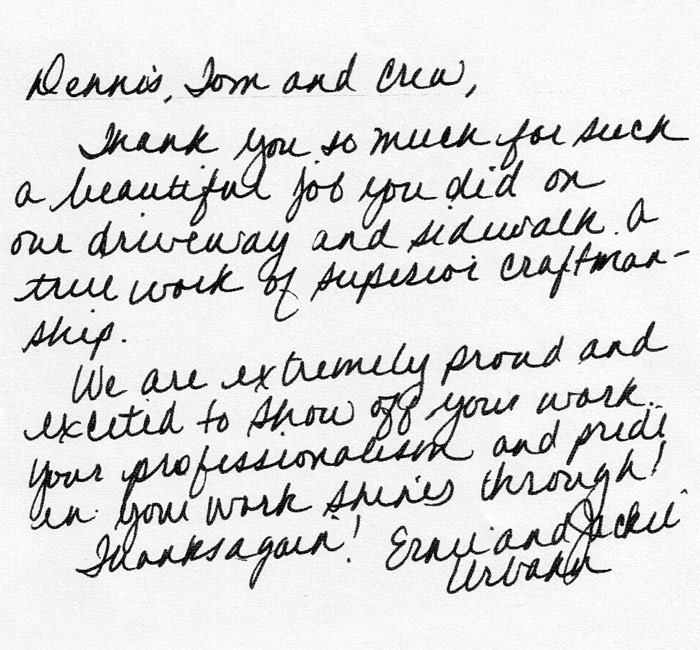 Dennis, Tom and Crew,
Thank you so much for such
a beautiful job you did on
our driveway and sidewalk. A
true work of superior craftman-
ship.
We are extremely proud and
excited to show off your work.
Your professionalism and pride
in your work shines through!
Thanks again! Ernie and Jackie
Urbany